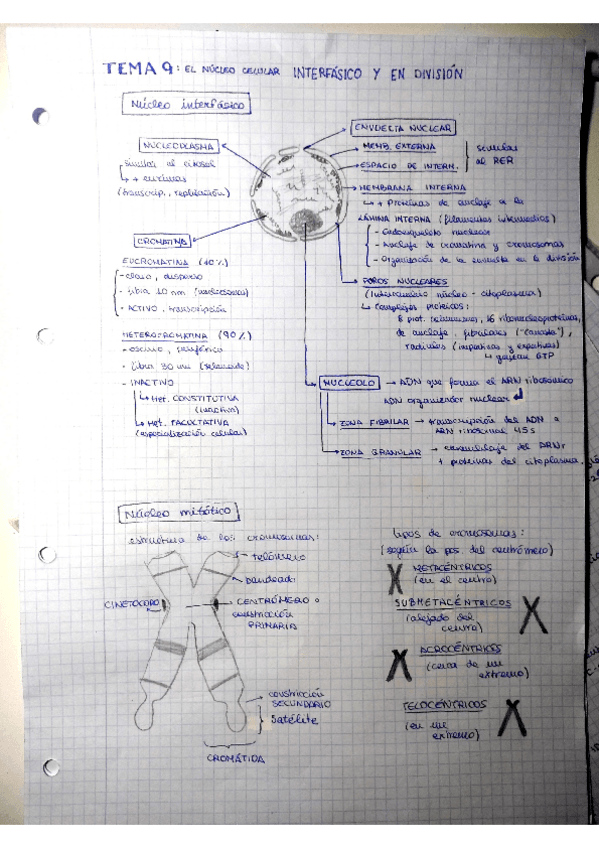 TEMA 9: EL NÚCLEO CELULAR INTERFÁSICO Y EN DIVISIÓN
Núcleo interfásico
NUCLEOPLASMA
similar al citosol
↳ + enzimas
(transcrip., replicación)
CROMATINA
EUCROMATINA (10%)
- claro, disperso
- fibra 10 nm (nucleosomas)
- ACTIVO, transcripción
HETEROCROMATINA (90%)
- oscuro, periférico
- fibra 30 nm (solenoide)
- INACTIVO
↳ Het. CONSTITUTIVA
(inactiva)
↳ Het. FACULTATIVA
(especialización celular)
ENVUELTA NUCLEAR
MEMB. EXTERNA
ESPACIO DE INTERM.
similar
al RER
MEMBRANA INTERNA
↳ + Proteínas de anclaje a la
LÁMINA INTERNA (filamentos intermedios)
- Endoesqueleto nuclear
- Anclaje de cromatina y cromosomas
- Organización de la envuelta en la división
POROS NUCLEARES
(Intercambio núcleo - citoplasma)
↳ Complejos proteicos:
8 prot. 16 ribonucleoproteínas,
de anclaje, fibrilares ("canasta"),
radiales (importinas y exportinas)
↳ gastan GTP
NUCLEOLO → ADN que forma el ARN ribosómico
ADN organizador nuclear
ZONA FIBRILAR → transcripción del ADN a
ARN ribosómico 45s
ZONA GRANULAR → ensamblaje del ARNr
+ proteínas del citoplasma.
Núcleo mitótico
estructura de los cromosomas:
telómero
bandeado
CINETOCORO
CENTRÓMERO o
constricción
PRIMARIA
constricción
SECUNDARIO
Satélite
CROMÁTIDA
tipos de cromosomas:
(según la pos. del centrómero)
METACÉNTRICOS
(en el centro)
SUBMETACÉNTRICOS
(alejado del
centro)
ACROCÉNTRICOS
(cerca de un
extremo)
TELOCÉNTRICOS
(en un
extremo)